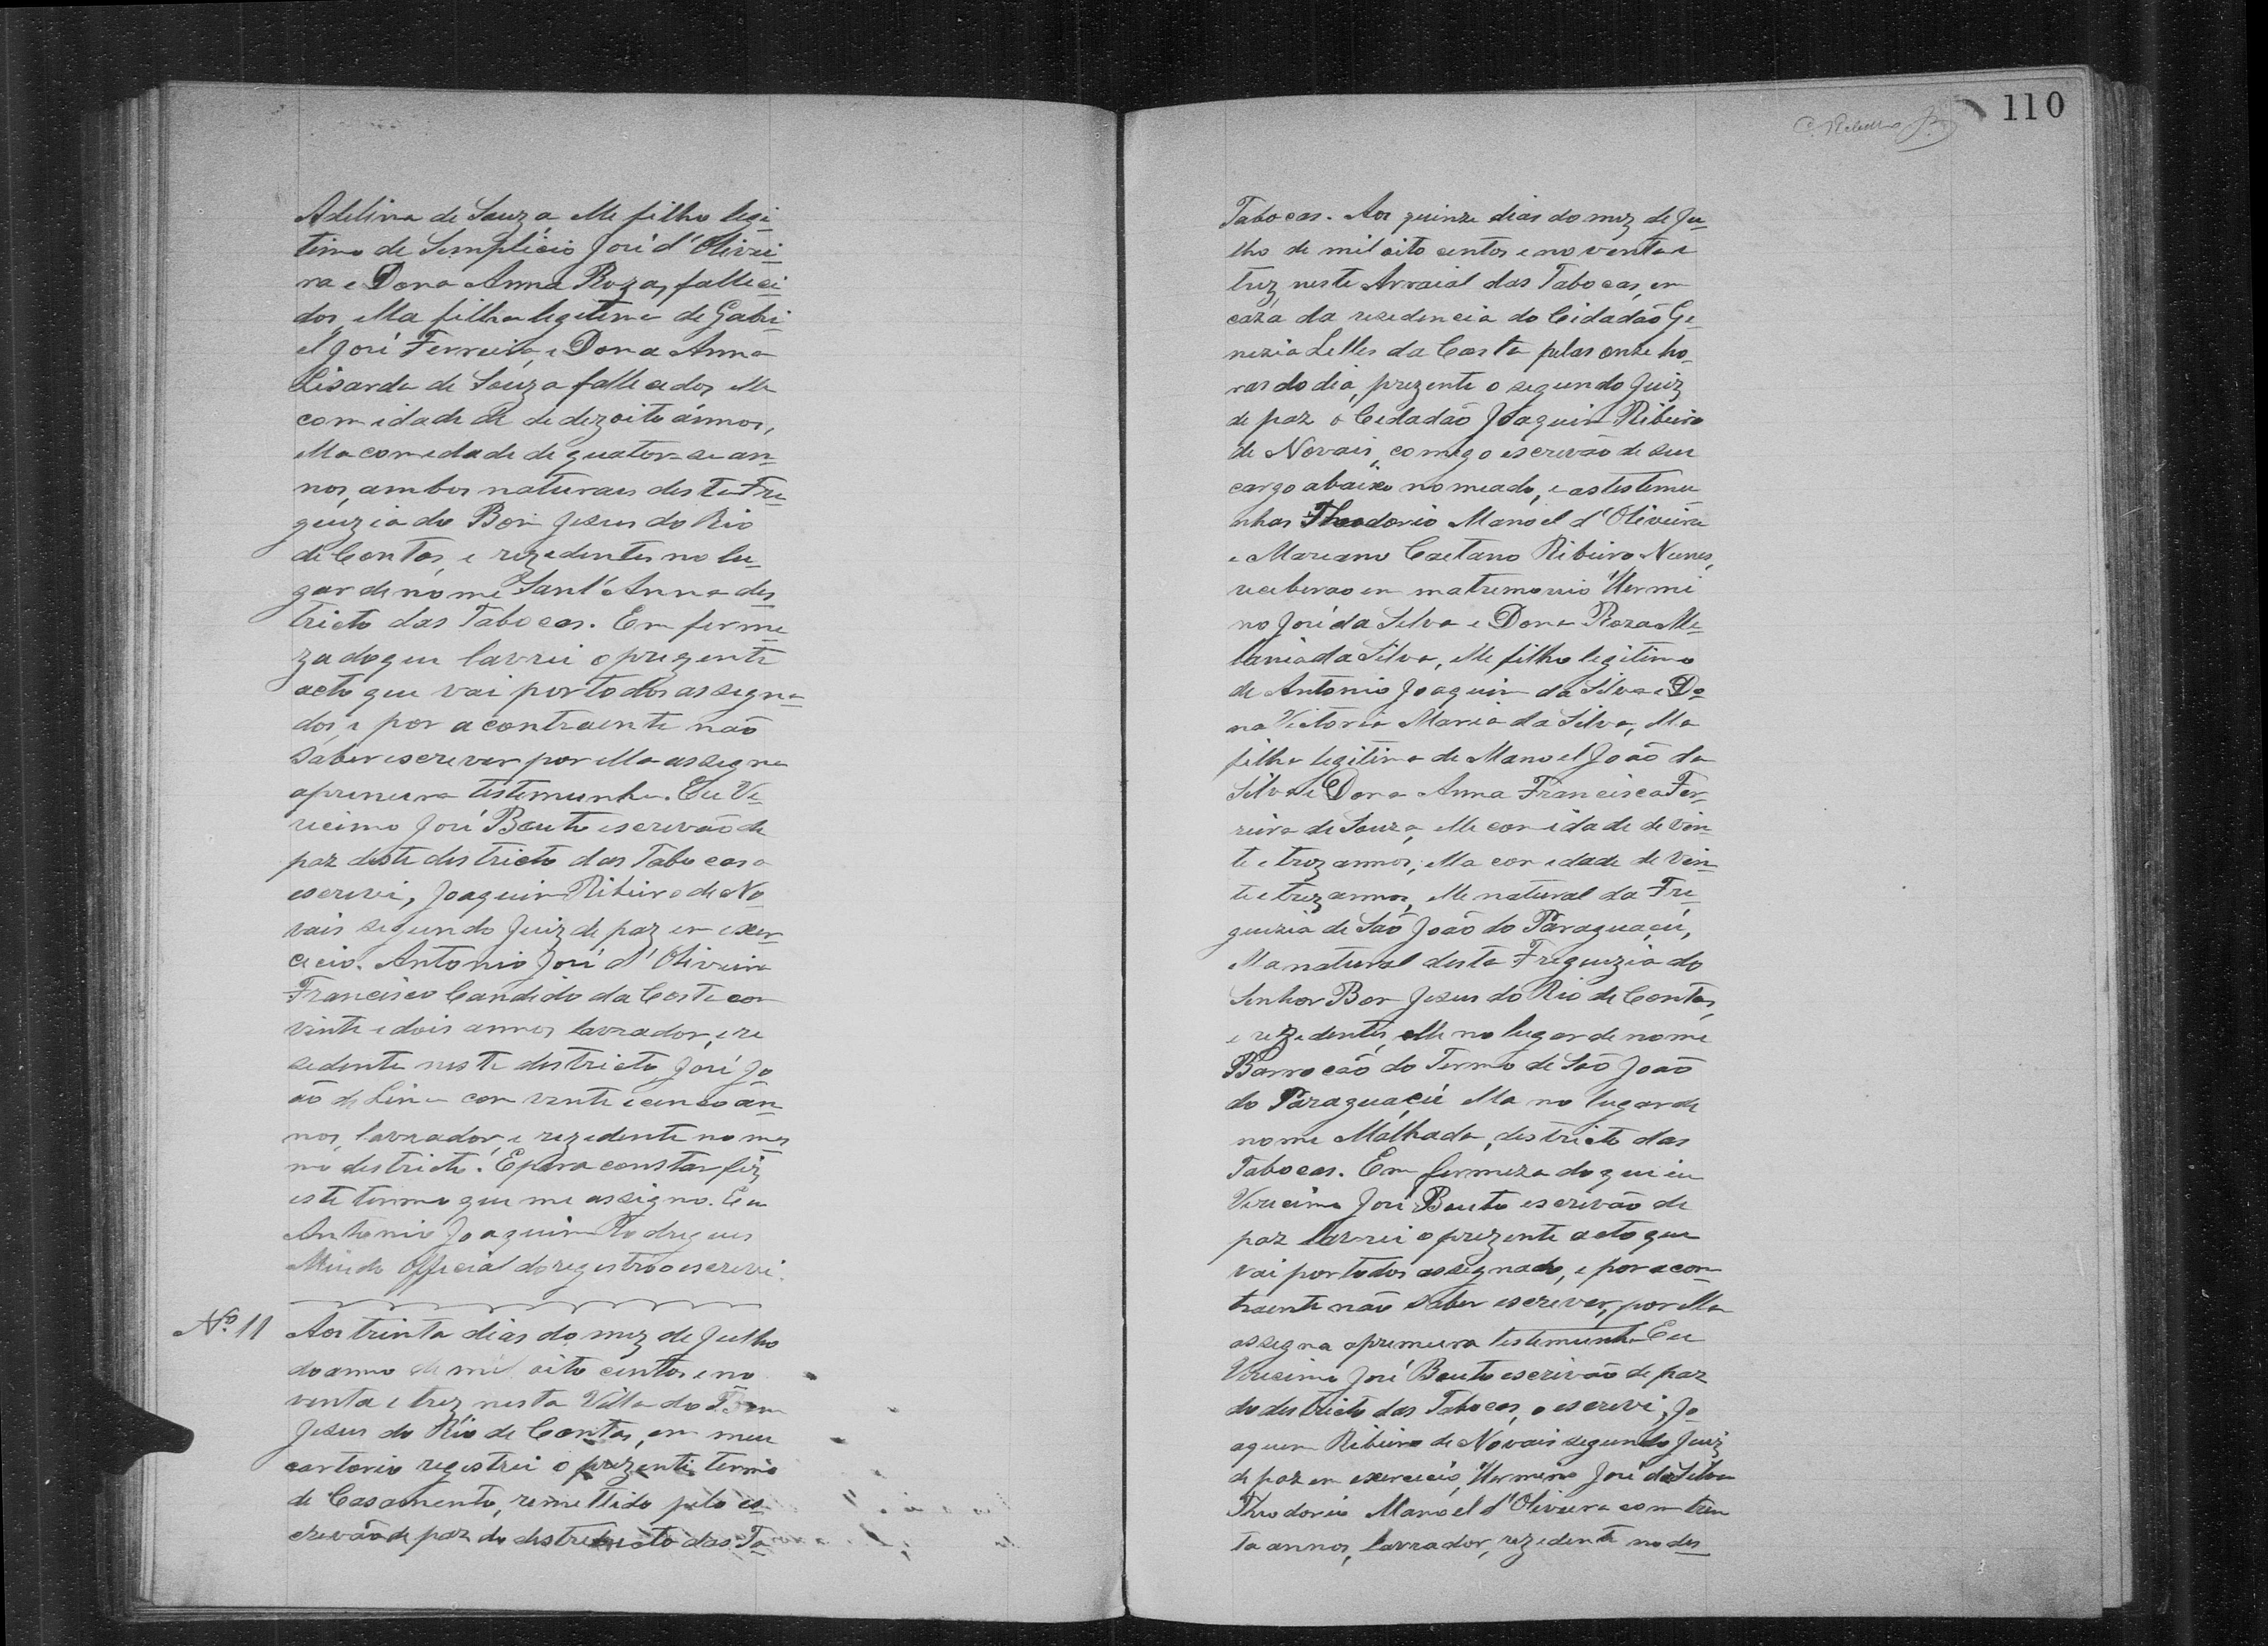 Adelina de Souza elle filho legi
timo de Semplicio José d'Olivei
ra e Dona Anna Roza, falleci
dos, ella filha legitima de Gabri
el José Ferreira, e Dona Anna
Lisarda de Souza fallecidos elle
com idade de de dezoito ánnos,
ella com edade de quatorse an
nos, ambos naturaes desta Fre
guezia do Bom Jesus do Rio
de Contas, e rezedentes no lu
gar de nome Sant'Anna des
tricto das Tabocas. Em ferme
za do que lavrei o prezente
acto que vai por todos assegna
dos, e por a contraente não
saber escrever por ella assegna
a premeira testemunha. Eu Ve
ricimo José Bouto escrevão de
paz deste destricto das Tabocas o
escrevi, Joaquim Ribeiro de No
vais segundo Juiz de paz em exer
cicio. Antonio José d'Oliveira
Francisco Candido da Costa com
vinte e dois annos lavrador, e re
sedente neste destricto, José Jo
ão de Lima com vente e cinco an
nos, lavrador, e rezedente no mes
mo destricto. E para constar fiz
este termo que me assigno. Eu
Antonio Joaquim Rodrigues
Official do registro o escrevi.
Nº 11 Aos trinta dias do mez de Julho
do anno de mil oito centos e no
venta e trez nesta Villa do Bom
Jesus do Rio de Contas, em meu
cartorio registrei o prezente termo
de Casamento, remettido pelo es
crevão de paz do destricto das Ta
110
Tabocas. Aos quinze dias do mez de Ju
lho de mil oito centos e noventa e
trez neste Arraial das Tabocas, em
caza da resedencia do Cidadão Ge
nezio Lelles da Costa pelas onze ho
ras do dia, prezente o segundo Juiz
de paz o Cedadão Joaquim Ribeiro
de Novais, comigo escrevão de seu
cargo abaixo nomeado, e as testemu
nhas Theodorio Manoel d'Oliveira
e Mareano Caetano Ribeiro Nunes,
receberao em matremonio Hermi
no José da Silva e Dona Roza Me
lania da Silva, elle filho legitimo
de Antonio Joaquim da Silva e Do
na Victoria Maria da Silva, ella
filha legitima de Manoel João da
Silva e Dona Anna Francisca Fer
reira de Souza, elle com idade de vin
te e trez annos, ella com edade de vin
te e trez annos, elle natural da Fre
guezia de São João do Paraguaçú,
ella natural desta Freguezia do
Senhor Bom Jesus do Rio de Contas,
e rezedentes, elle no lugar de nome
Barrocão do Termo de São João
do Paraguaçú ella no lugar de
nome Malhada, destricto das
Tabocas. Em fermeza do que eu
Vericimo José Bouto escrivão de
paz lavrei o prezente acto que
vai por todos assegnado, e por a con
traente não saber escrever, por ella
assegna a premeira testemunha Eu
Vericimo José Bouto escrivão de paz
do destricto das Tabocas, o escrevi, Jo
aquim Ribeiro de Novais segundo Juiz
de paz em exercicio, Hermino José da Silva
Theodorio Manoel d'Oliveira com trin
ta annos, lavrador, rezedente no des